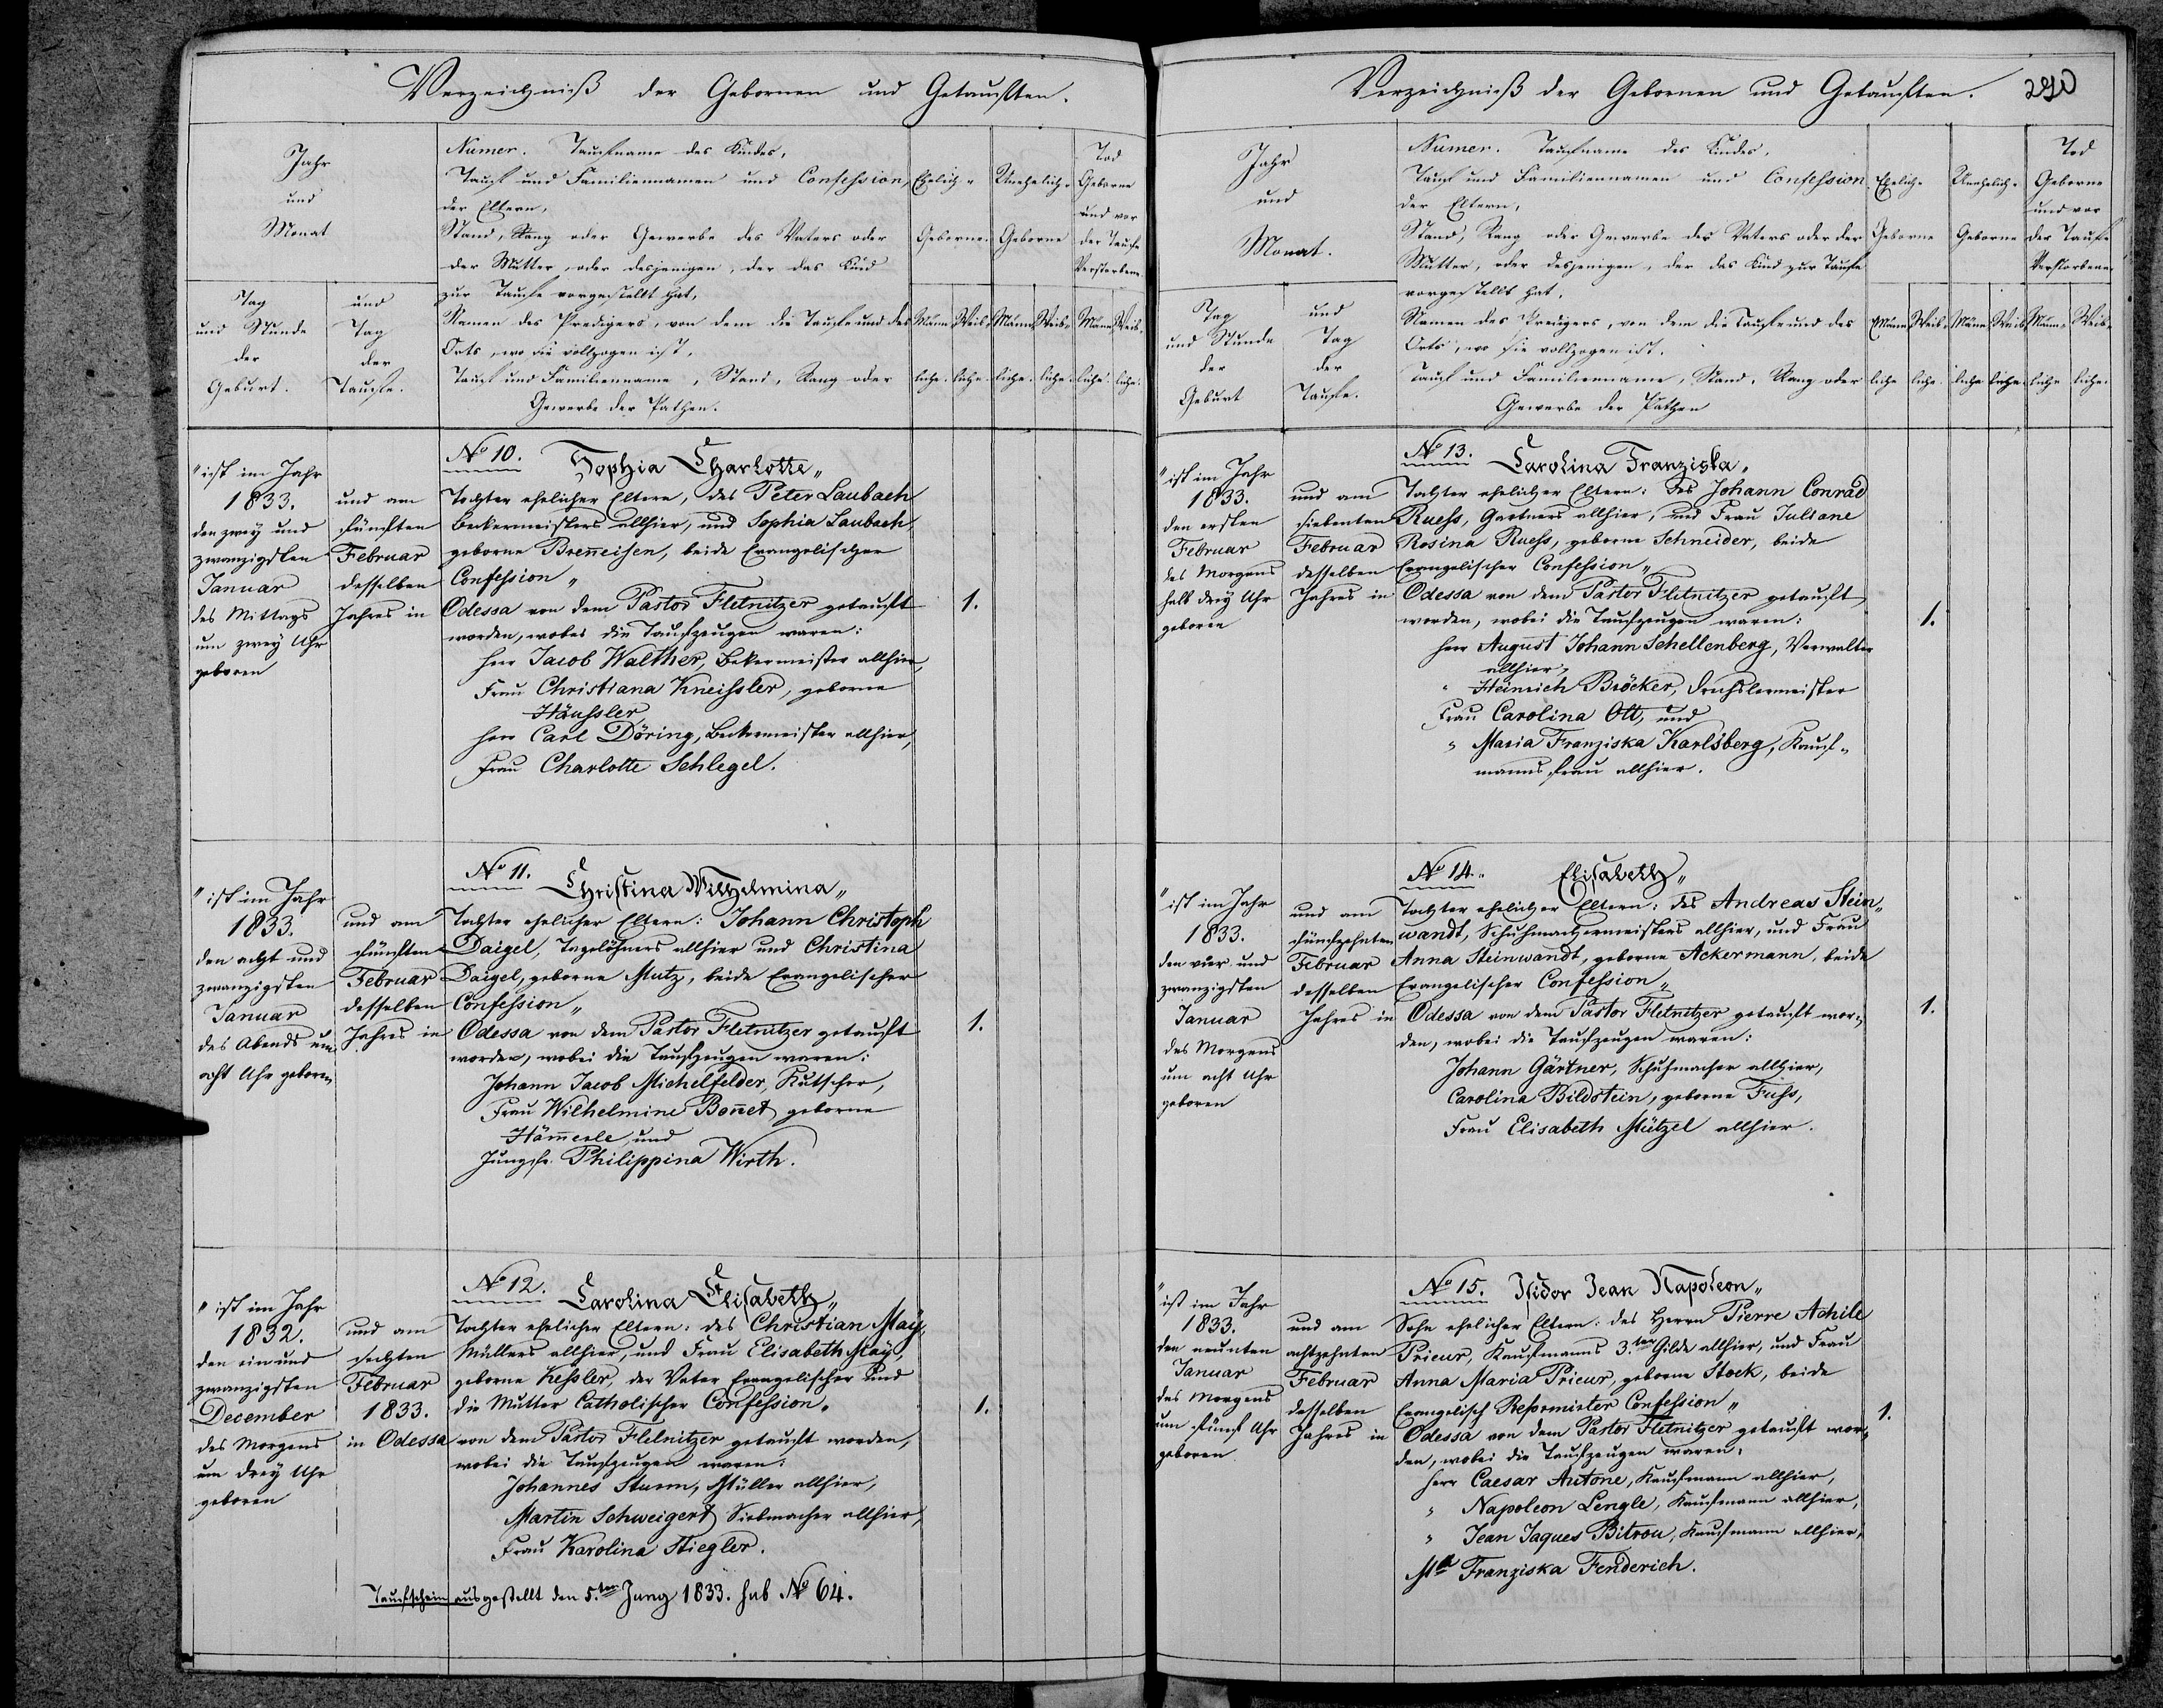 Verzeichniß der Gebornen und Getauften.
Jahr
und
Monat
Tag
und Stunde
der
Geburt.
und
Tag
der
Taufe.
Numer. Taufname des Kindes,
Tauf und Familiennamen und Confession,
der Eltern,
Stand, Rang oder Gewerbe des Vaters oder
der Mutter, oder desjenigen, der das Kind
zur Taufe vorgestellt hat,
Namen des Predigers, von dem die Taufe und des
Orts, wo sie vollzogen ist,
Tauf und Familienname, Stand, Rang oder
Gewerbe der Pathen.
Ehelich-
Geborne.
Unehelich-
Geborne
Tod
Geborne
und vor
der Taufe
Verstorbene
Männ- Weib- Männ- Weib- Männ- Weib-
liche. liche. liche. liche. liche. liche.
"ist im Jahr
1833.
den zwey und
zwanzigsten
Januar
des Mittags
um zwey Uhr
geboren
und am
fünften
Februar
desselben
Jahres in
No 10. Sophia Charlotte"
Tochter ehelicher Eltern, des Peter Laubach
Beckermeisters allhier, und Sophia Laubach
geborne Breneisen, beide Evangelischer
Confession"
Odessa von dem Pastor Fletnitzer getauft
worden, wobei die Taufzeugen waren:
Herr Jacob Walther, Bekermeister allhier,
Frau Christiana Kneissler, geborne
Häussler
Herr Carl Döring, Beckermeister allhier,
Frau Charlotte Schlegel.
1.
"ist im Jahr
1833.
den acht und
zwanzigsten
Januar
des Abends um
acht Uhr geboren
und am
fünften
Februar
desselben
Jahres in
No 11. Christina Wilhelmina"
Tochter ehelicher Eltern: Johann Christoph
Daigel, Tagelöhners allhier und Christina
Daigel, geborne Mutz, beide Evangelischer
Confession"
Odessa von dem Pastor Fletnitzer getauft
worden, wobei die Taufzeugen waren:
Johann Jacob Michelfelder, Kutscher,
Frau Wilhelmine Bonet geborne
Hämerle, und
Jungfr. Philippina Wirth.
1.
"ist im Jahr
1832.
den ein und
zwanzigsten
December
des Morgens
um drey Uhr
geboren
und am
sechsten
Februar
1833.
in Odessa
No 12. Carolina Elisabeth"
Tochter ehelicher Eltern: des Christian Maÿ,
Müllers allhier, und Frau Elisabeth Maÿ,
geborne Kessler, der Vater Evangelischer und
die Mutter Catholischer Confession"
von dem Pastor Fletnitzer getauft worden,
wobei die Taufzeugen waren:
Johannes Sturm, Müller allhier,
Martin Schweigert Siebmacher allhier,
Frau Karolina Stiegler.
1.
Taufschein ausgestellt den 5.ten Juny 1833. sub No 64.
Verzeichniß der Gebornen und Getauften.
290
Jahr
und
Monat.
Tag
und Stunde
der
Geburt
und
Tag
der
Taufe.
Numer. Taufname des Kindes,
Tauf und Familiennamen und Confession
der Eltern,
Stand, Rang oder Gewerbe des Vaters oder der
Mutter, oder desjenigen, der das Kind zur Taufe
vorgestellt hat,
Namen des Predigers, von dem die Taufe und des
Orts, wo sie vollzogen ist.
Tauf und Familienname, Stand, Rang oder
Gewerbe der Pathen
Ehelich-
Geborne
Unehelich-
Geborne
Tod
Geborne
und vor
der Taufe
Verstorbene
Männ- Weib- Männ- Weib- Männ- Weib-
liche liche. liche liche. liche liche.
"ist im Jahr
1833.
den ersten
Februar
des Morgens
halb drey Uhr
geboren
und am
siebenten
Februar
desselben
Jahres in
No 13. Carolina Franziska"
Tochter ehelicher Eltern: des Johann Conrad
Ruess, Gartners allhier, und Frau Juliane
Rosina Ruess, geborne Schneider, beide
Evangelischer Confession"
Odessa von dem Pastor Fletnitzer getauft
worden, wobei die Taufzeugen waren:
Herr August Johann Schellenberg, Verwalter
allhier,
" Heinrich Bröcker, Drechslermeister
Frau Carolina Ott, und
" Maria Franziska Karlsberg, Kauf-
mannsfrau allhier.
1.
"ist im Jahr
1833.
den vier und
zwanzigsten
Januar
des Morgens
um acht Uhr
geboren
und am
fünfzehnten
Februar
desselben
Jahres in
No 14. Elisabeth"
Tochter ehelicher Eltern: des Andreas Stein"
wandt, Schuhmachermeisters allhier, und Frau
Anna Steinwandt, geborne Ackermann, beide
Evangelischer Confession"
Odessa von dem Pastor Fletnitzer getauft wor-
den, wobei die Taufzeugen waren:
Johann Gärtner, Schuhmacher allhier,
Carolina Bildstein, geborne Fuhs,
Frau Elisabeth Mützel allhier.
1.
"ist im Jahr
1833.
den neunten
Januar
des Morgens
um fünf Uhr
geboren
und am
achtzehnten
Februar
desselben
Jahres in
No 15. Isidor Jean Napoleon"
Sohn ehelicher Eltern: des Herrn Pierre Achile
Prieur, Kaufmanns 3.ter Gilde allhier, und Frau
Anna Maria Prieur, geborne Stock, beide
Evangelisch Reformirter Confession"
Odessa von dem Pastor Fletnitzer getauft wor-
den, wobei die Taufzeugen waren:
Herr Caesar Antone, Kaufmann allhier,
" Napoleon Lengle, Kaufmann allhier,
" Jean Jaques Bitrou, Kaufmann allhier,
Mlle Franziska Fenderich.
1.